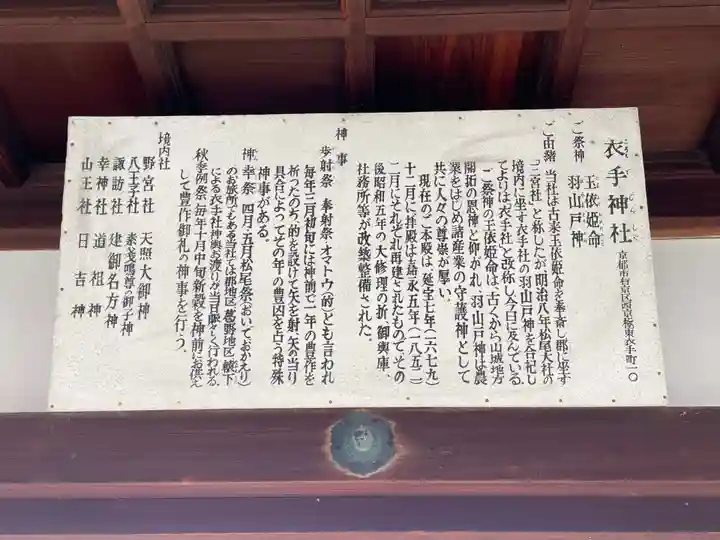 衣手神社 京都市右京区西京極東衣手町一〇
ご祭神 玉依姫命
羽山戸神
ご由緒 当社は古来玉依姫命を奉斎し郡に坐す
「三宮社」と称したが明治八年松尾大社の
境内に坐す衣手社の羽山戸神を合祀し
てよりは衣手社と改称し今日に及んでいる
ご祭神の玉依姫命は、古くから山城地方
開拓の恩神と仰がれ、羽山戸神は農
業をはじめ諸産業の守護神として
共に人々の尊崇が厚い。
現在のご本殿は、延宝七年(一六七九)
十二月に拝殿は嘉永五年(一八五二)
二月にそれぞれ再建されたもので、その
後昭和五年の大修理の折、御輿庫、
社務所等が改築整備された。
神事
歩射祭 奉射祭・オマトウ(的)とも言われ
毎年三月初旬には神前で一年の豊作を
祈ったのち、的を設けて矢を射、矢の当り
具合によってその年の豊凶を占う特殊
神事がある。
神幸祭 四月・五月松尾祭(おいで・おかえり)
のお旅所でもある当社では郡地区(葛野地区)轅下
による衣手社神輿お渡りが当日賑々しく行われる
秋季例祭 毎年十月中旬新穀を神前にお供え
して豊作御礼の神事を行う。
境内社
野宮社 天照大御神
八王子社 素戔嗚尊の御子神
諏訪社 建御名方神
幸神社 道祖神
山王社 日吉神